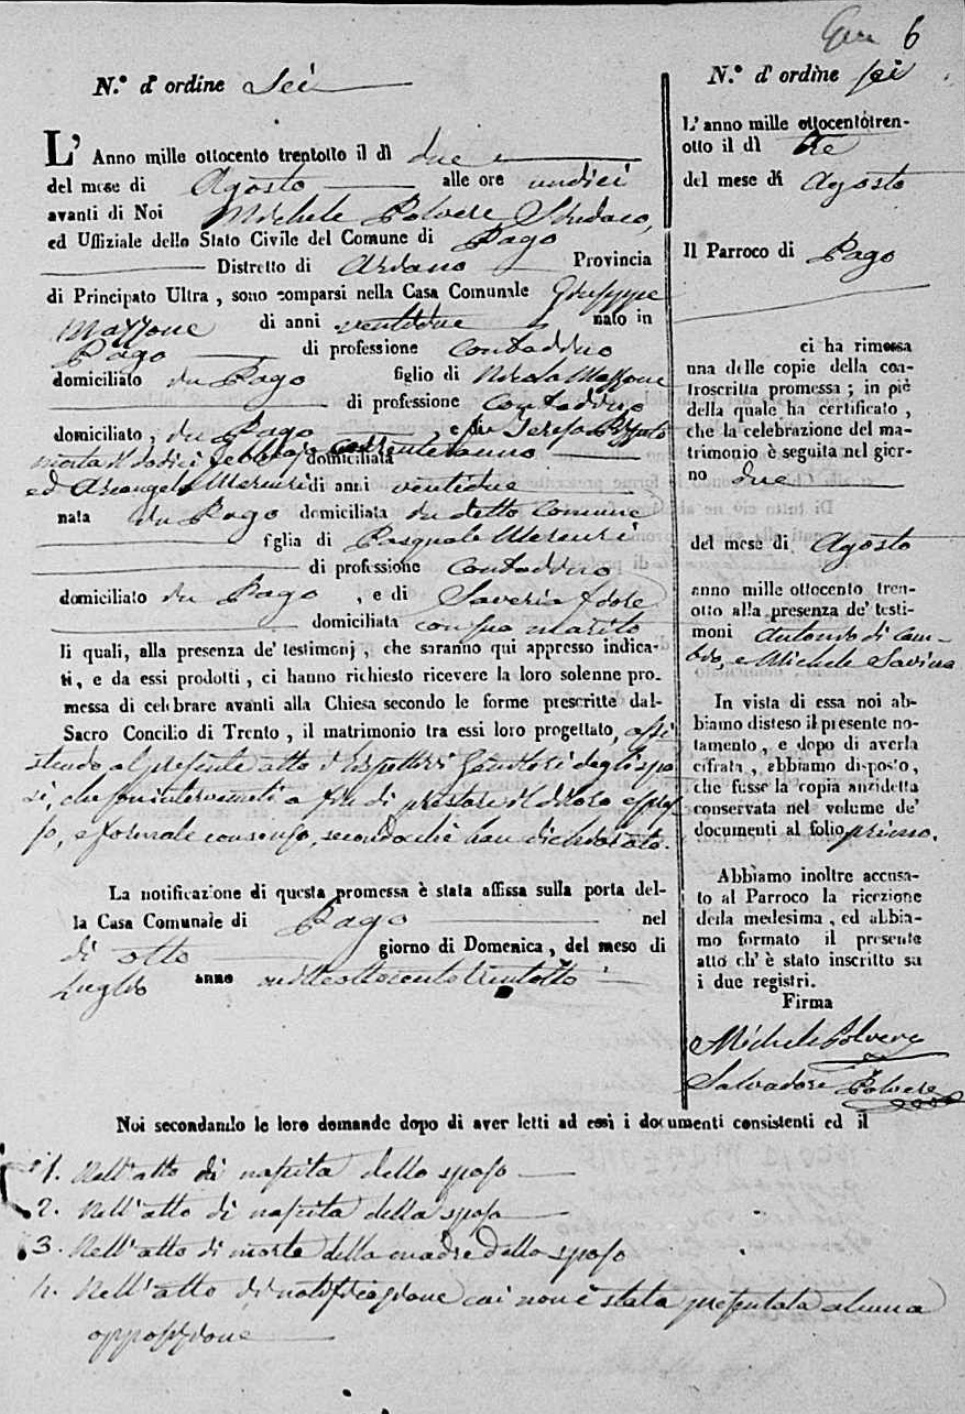 6
N.º d'ordine Sei
L'Anno mille ottocento trentotto il dì due
del mese di Agosto alle ore undici
avanti di Noi Michele Polvere Sindaco,
ed Uffiziale dello Stato Civile del Comune di Pago
Distretto di Ariano Provincia
di Principato Ultra, sono comparsi nella Casa Comunale Giuseppe
Mazzone di anni ventidue nato in
Pago di professione Contadino
domiciliato in Pago figlio di Nicola Mazzone
di professione Contadino
domiciliato, in Pago, e fu Teresa
morta il dodici Febbrajo corrente anno domiciliata
ed Arcangela Mercuri di anni ventidue
nata in Pago domiciliata in detto Comune
figlia di Pasquale Mercuri
di professione Contadino
domiciliato in Pago, e di Saveria
domiciliata con suo marito
li quali, alla presenza de' testimonj, che saranno qui appresso indica-
ti, e da essi prodotti, ci hanno richiesto ricevere la loro solenne pro-
messa di celebrare avanti alla Chiesa secondo le forme prescritte dal
Sacro Concilio di Trento, il matrimonio tra essi loro progettato, assi
stendo al presente atto i rispettivi Genitori degli spo
si, che son intervenuti a fin di prestare il di loro espres
so, e formale consenso, secondo che han dichiarato.
La notificazione di questa promessa è stata affissa sulla porta del-
la Casa Comunale di Pago nel
dì otto giorno di Domenica, del mese di
Luglio anno milleottocentotrentotto
N.º d'ordine sei
L'anno mille ottocentotren-
otto il dì tre
del mese di Agosto
Il Parroco di Pago
ci ha rimessa
una delle copie della con-
troscritta promessa; in piè
della quale ha certificato,
che la celebrazione del ma-
trimonio è seguita nel gior-
no due
del mese di Agosto
anno mille ottocento tren-
otto alla presenza de' testi-
moni Antonio di Cam-
bio, e Michele Savina
In vista di essa noi ab-
biamo disteso il presente no-
tamento, e dopo di averla
cifrata, abbiamo disposto,
che fusse la copia anzidetta
conservata nel volume de'
documenti al folio primo.
Abbiamo inoltre accusa-
to al Parroco la ricezione
della medesima, ed abbia-
mo formato il presente
atto ch'è stato inscritto su
i due registri.
Firma
Michele Polvere
Salvadore Polvere
Noi secondando le loro domande dopo di aver letti ad essi i documenti consistenti ed il
1. Nell'atto di nascita dello sposo
2. Nell'atto di nascita della sposa
3. Nell'atto di morte della madre dello sposo
4. Nell'atto di notificazione cui non è stata presentata alcuna
opposizione